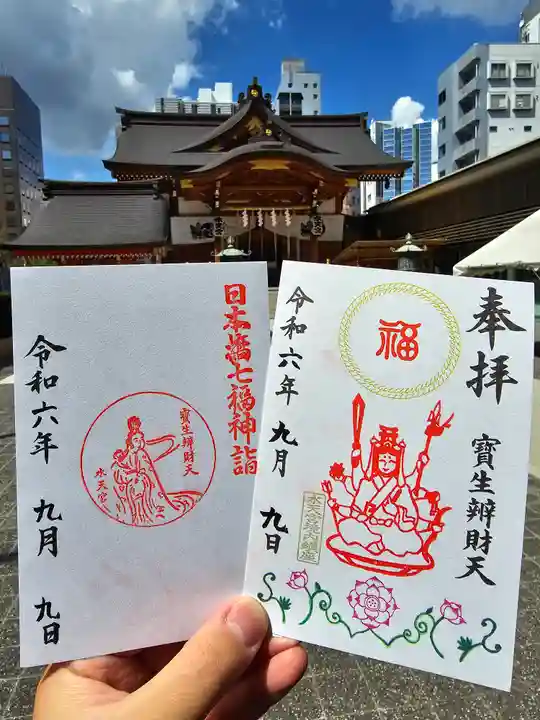 日本橋七福神詣
寶生辨財天
水天宮
令和六年 九月 九日
奉拝
寶生辨財天
福
令和六年 九月 九日